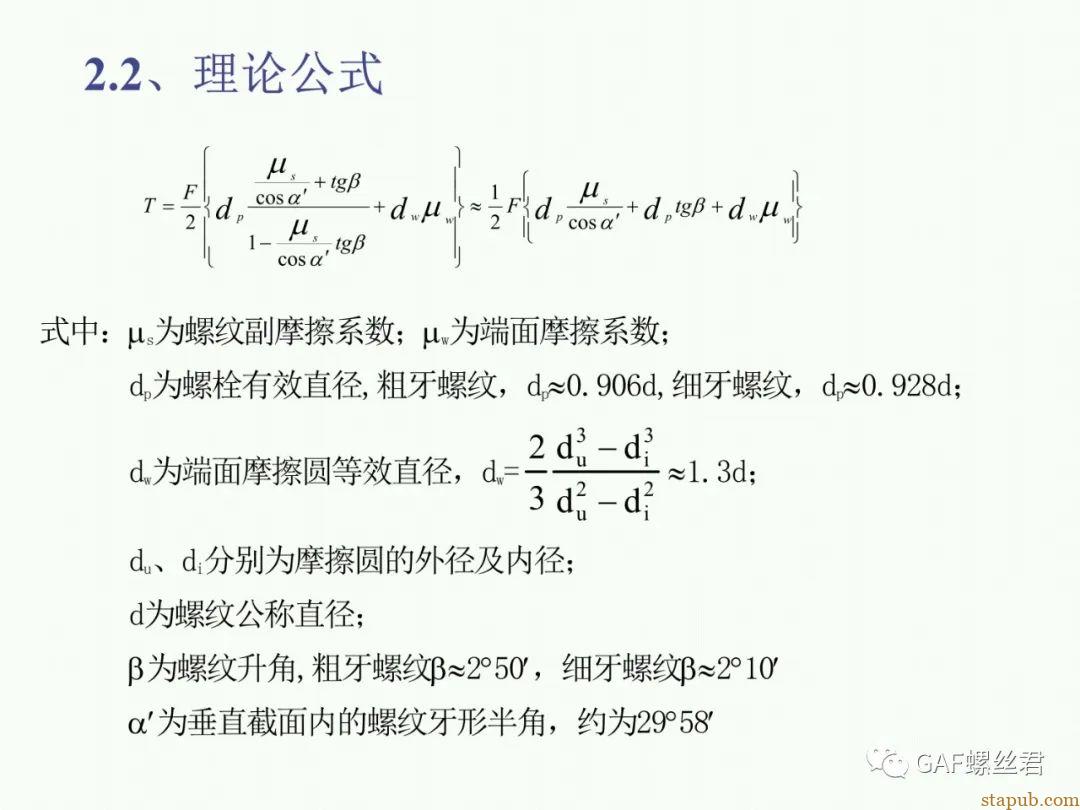 2.2、理论公式
T = F/2 { d_p (μ_s/cos α′ + tgβ)/(1 − μ_s/cos α′ tgβ) + d_w μ_w } ≈ 1/2 F { d_p μ_s/cos α′ + d_p tgβ + d_w μ_w }
式中：μs为螺纹副摩擦系数；μw为端面摩擦系数；
dp为螺栓有效直径,粗牙螺纹，dp≈0.906d,细牙螺纹，dp≈0.928d；
dw为端面摩擦圆等效直径，dw= 2/3 (d_u^3 − d_i^3)/(d_u^2 − d_i^2) ≈1.3d；
du、di分别为摩擦圆的外径及内径；
d为螺纹公称直径；
β为螺纹升角,粗牙螺纹β≈2°50′，细牙螺纹β≈2°10′
α′为垂直截面内的螺纹牙形半角，约为29°58′
GAF螺丝君
stapub.com